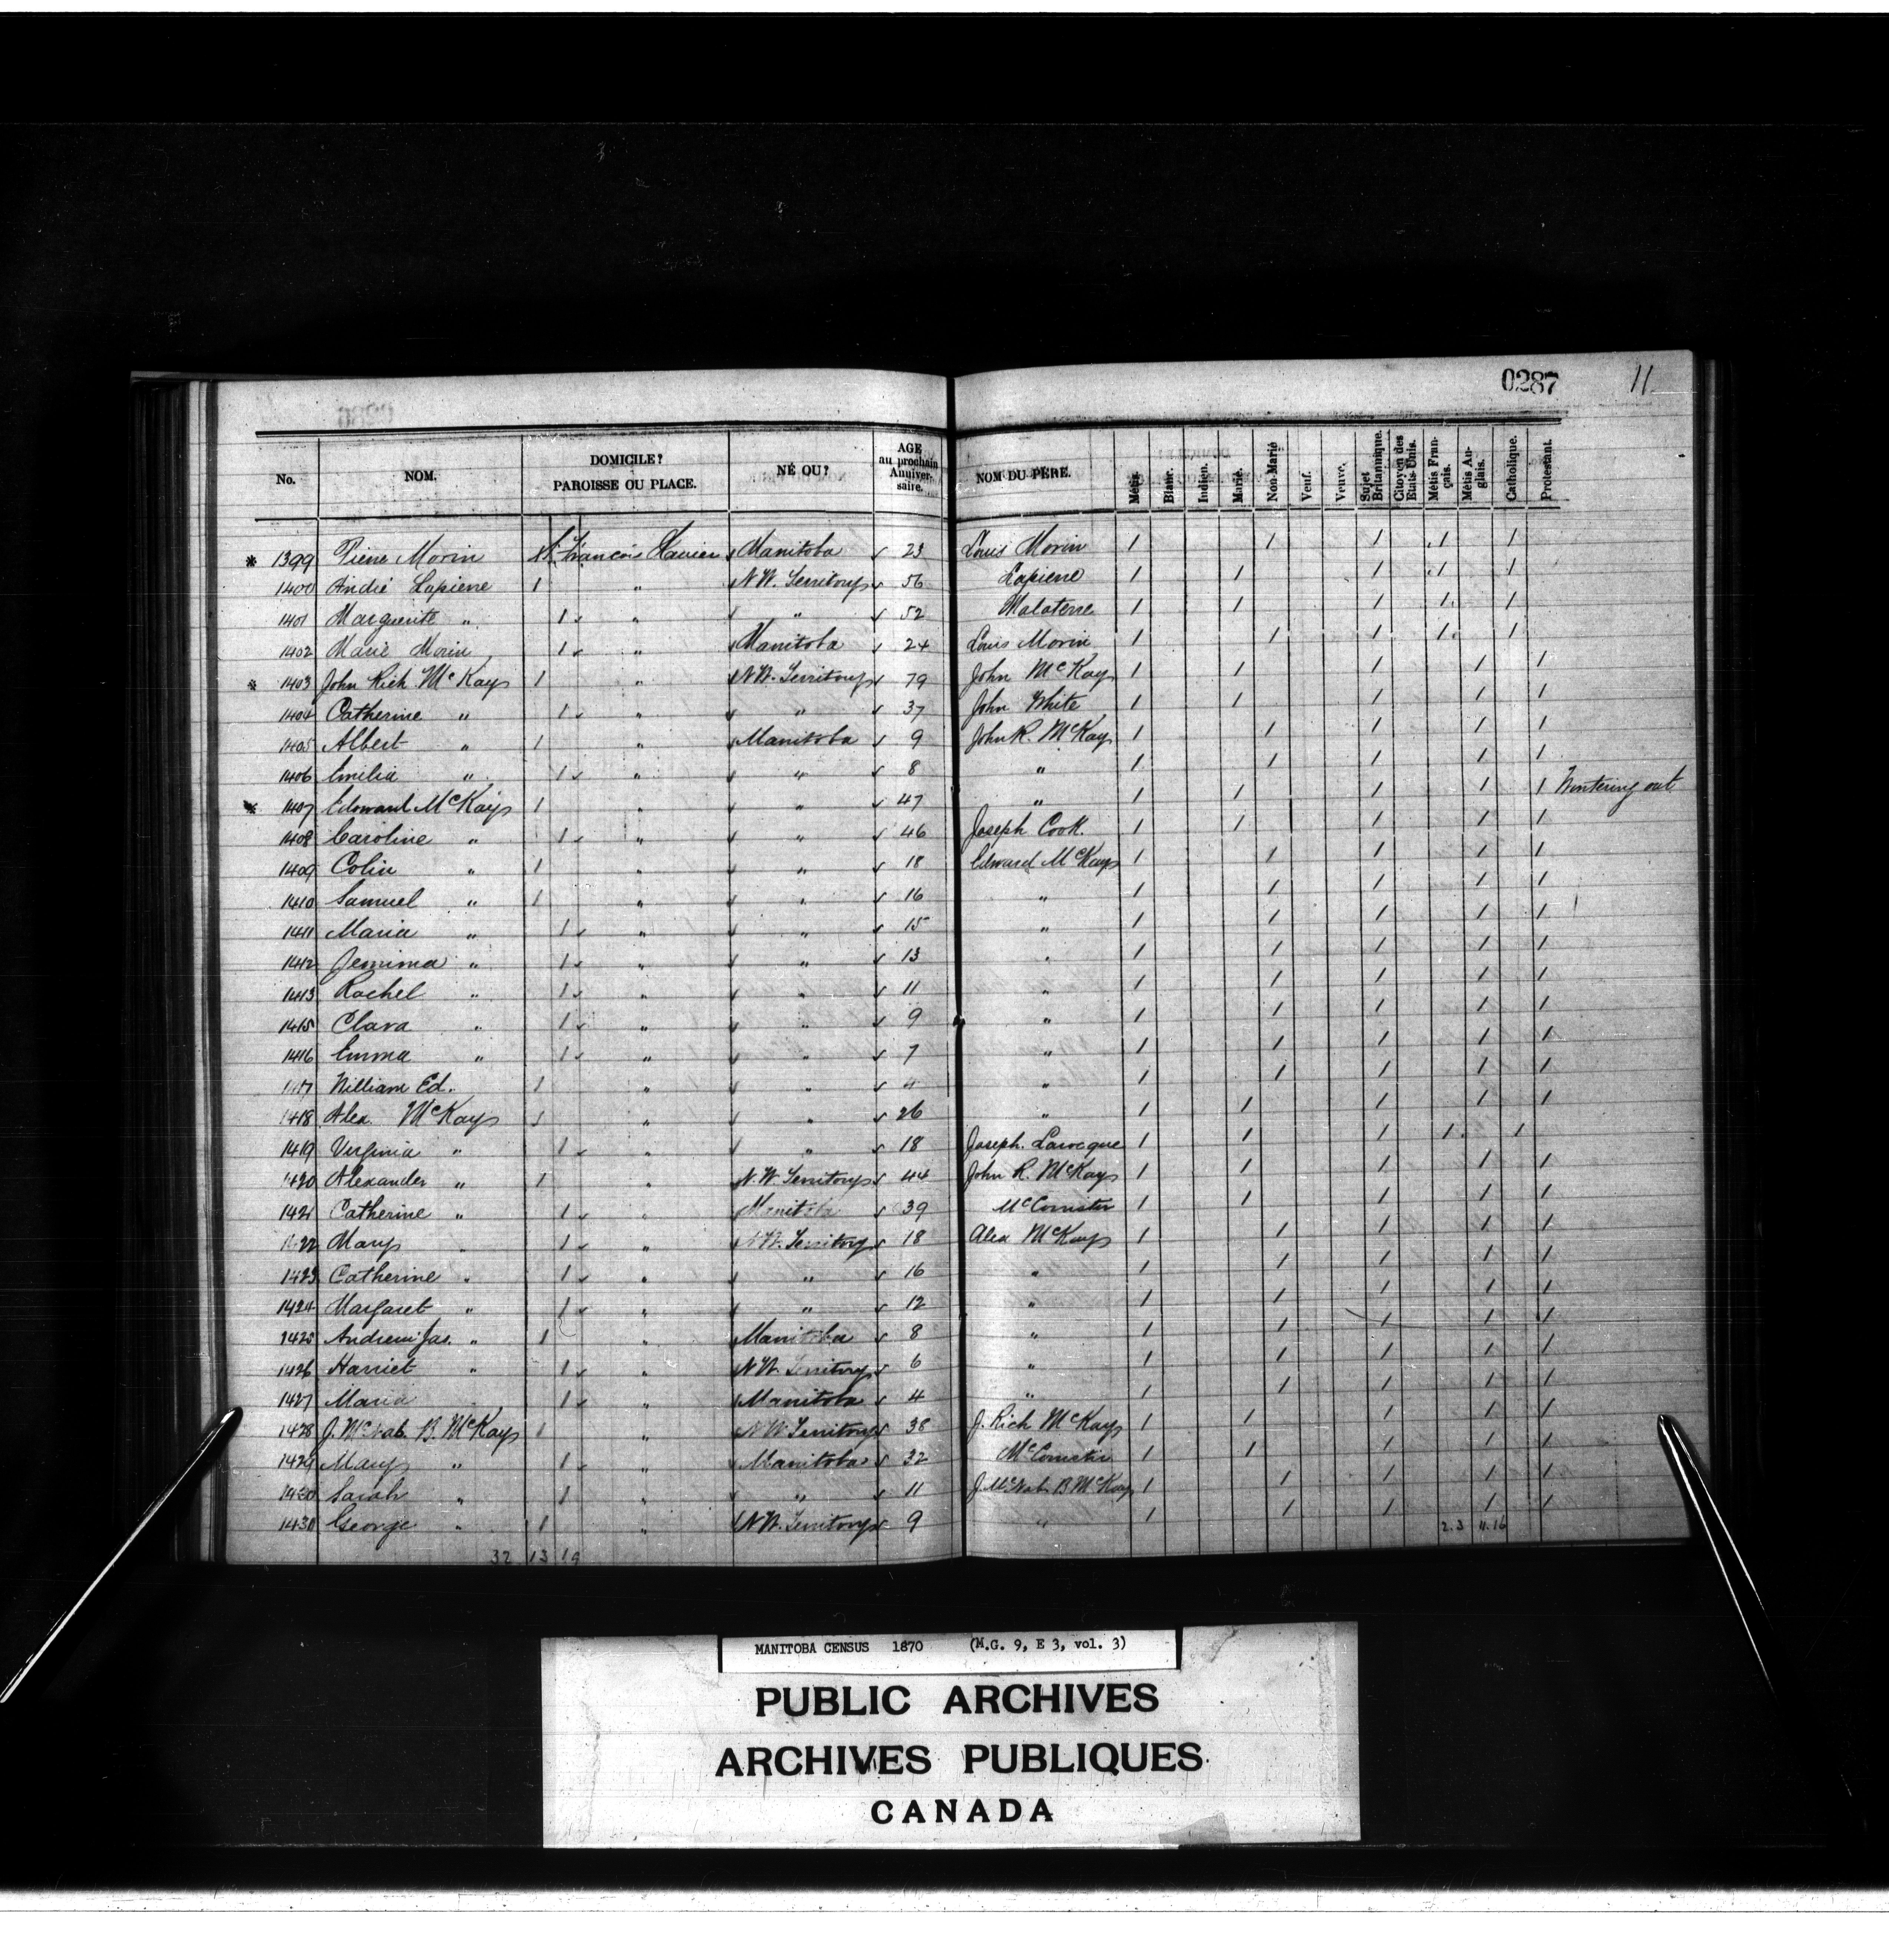 0287 11
No. NOM. DOMICILE? PAROISSE OU PLACE. NÉ OU? AGE au prochain Anniversaire. NOM DU PÈRE. Métis. Blanc. Indien. Marié. Non-Marié Veuf. Veuve. Sujet Britannique. Citoyen des Etats-Unis. Métis Français. Métis Anglais. Catholique. Protestant.
* 1399 Pierre Morin St. François Xavier Manitoba 23 Louis Morin 1 1 1 1 1
1400 André Lapierre 1 " N.W. Territory 56 Lapierre 1 1 1 1 1
1401 Marguerite " 1 " " 52 Malaterre 1 1 1 1 1
1402 Marie Morin 1 " Manitoba 24 Louis Morin 1 1 1 1 1
* 1403 John Rich McKay 1 " N.W. Territory 79 John McKay 1 1 1 1 1
1404 Catherine " 1 " " 37 John White 1 1 1 1 1
1405 Albert " 1 " Manitoba 9 John R. McKay 1 1 1 1 1
1406 Emilia " 1 " " 8 " 1 1 1 1 1
* 1407 Edward McKay 1 " " 47 " 1 1 1 1 1 Wintering out
1408 Caroline " 1 " " 46 Joseph Cook. 1 1 1 1 1
1409 Colin " 1 " " 18 Edward McKay 1 1 1 1 1
1410 Samuel " 1 " " 16 " 1 1 1 1 1
1411 Maria " 1 " " 15 " 1 1 1 1 1
1412 Jemima " 1 " " 13 " 1 1 1 1 1
1413 Rachel " 1 " " 11 " 1 1 1 1 1
1415 Clara " 1 " " 9 " 1 1 1 1 1
1416 Emma " 1 " " 7 " 1 1 1 1 1
1417 William Ed. 1 " " 4 " 1 1 1 1 1
1418 Alex. McKay 1 " " 26 " 1 1 1 1 1
1419 Virginia " 1 " " 18 Joseph Larocque 1 1 1 1 1
1420 Alexander " 1 " N.W. Territory 44 John R. McKay 1 1 1 1 1
1421 Catherine " 1 " Manitoba 39 McCorrister 1 1 1 1 1
1422 Mary " 1 " N.W. Territory 18 Alex McKay 1 1 1 1 1
1423 Catherine " 1 " " 16 " 1 1 1 1 1
1424 Margaret " 1 " " 12 " 1 1 1 1 1
1425 Andrew Jas. " 1 " Manitoba 8 " 1 1 1 1 1
1426 Harriet " 1 " N.W. Territory 6 " 1 1 1 1 1
1427 Maria 1 " Manitoba 4 " 1 1 1 1 1
1428 J. McNab B. McKay 1 " N.W. Territory 38 J. Rich McKay 1 1 1 1 1
1429 Mary " 1 " Manitoba 32 McCorrister 1 1 1 1 1
1430 Sarah " 1 " " 11 J. McNab B McKay 1 1 1 1 1
1431 George " 1 " N.W. Territory 9 " 1 1 1 1 1
2.3 11.16
32 13 19
MANITOBA CENSUS 1870 (M.G. 9, E 3, vol. 3)
PUBLIC ARCHIVES
ARCHIVES PUBLIQUES
CANADA